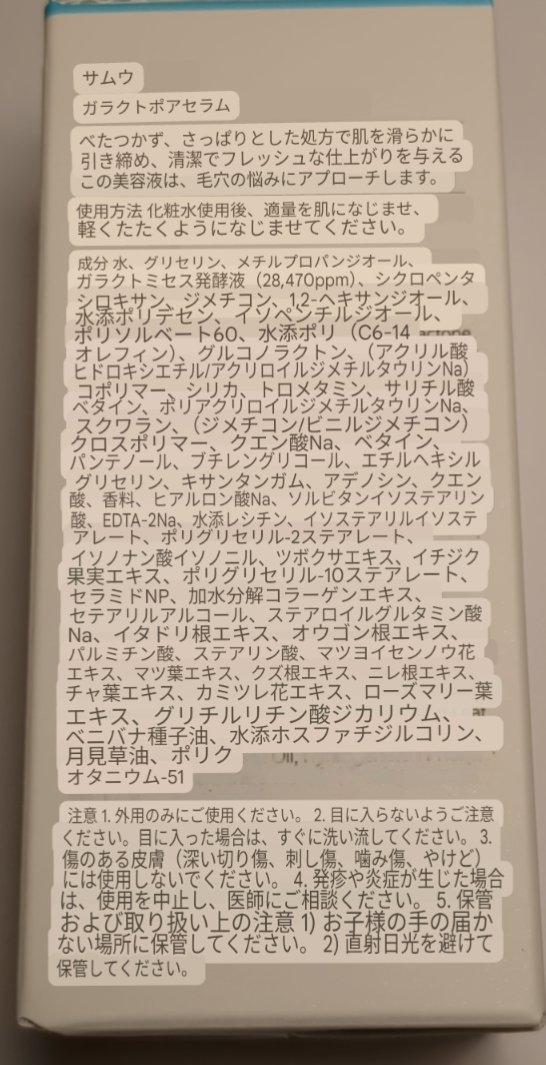 サムウ
ガラクトポアセラム
べたつかず、さっぱりとした処方で肌を滑らかに
引き締め、清潔でフレッシュな仕上がりを与える
この美容液は、毛穴の悩みにアプローチします。
使用方法 化粧水使用後、適量を肌になじませ、
軽くたたくようになじませてください。
成分 水、グリセリン、メチルプロパンジオール、
ガラクトミセス発酵液（28,470ppm）、シクロペンタ
シロキサン、ジメチコン、1,2-ヘキサンジオール、
水添ポリデセン、イソペンチルジオール、
ポリソルベート60、水添ポリ（C6-14
オレフィン）、グルコノラクトン、（アクリル酸
ヒドロキシエチル/アクリロイルジメチルタウリンNa）
コポリマー、シリカ、トロメタミン、サリチル酸
ベタイン、ポリアクリロイルジメチルタウリンNa、
スクワラン、（ジメチコン/ビニルジメチコン）
クロスポリマー、クエン酸Na、ベタイン、
パンテノール、ブチレングリコール、エチルヘキシル
グリセリン、キサンタンガム、アデノシン、クエン
酸、香料、ヒアルロン酸Na、ソルビタンイソステアリン
酸、EDTA-2Na、水添レシチン、イソステアリルイソステ
アレート、ポリグリセリル-2ステアレート、
イソノナン酸イソノニル、ツボクサエキス、イチジク
果実エキス、ポリグリセリル-10ステアレート、
セラミドNP、加水分解コラーゲンエキス、
セテアリルアルコール、ステアロイルグルタミン酸
Na、イタドリ根エキス、オウゴン根エキス、
パルミチン酸、ステアリン酸、マツヨイセンノウ花
エキス、マツ葉エキス、クズ根エキス、ニレ根エキス、
チャ葉エキス、カミツレ花エキス、ローズマリー葉
エキス、グリチルリチン酸ジカリウム、
ベニバナ種子油、水添ホスファチジルコリン、
月見草油、ポリク
オタニウム-51
注意 1. 外用のみにご使用ください。 2. 目に入らないようご注意
ください。目に入った場合は、すぐに洗い流してください。 3.
傷のある皮膚（深い切り傷、刺し傷、噛み傷、やけど）
には使用しないでください。 4. 発疹や炎症が生じた場合
は、使用を中止し、医師にご相談ください。 5. 保管
および取り扱い上の注意 1) お子様の手の届か
ない場所に保管してください。 2) 直射日光を避けて
保管してください。